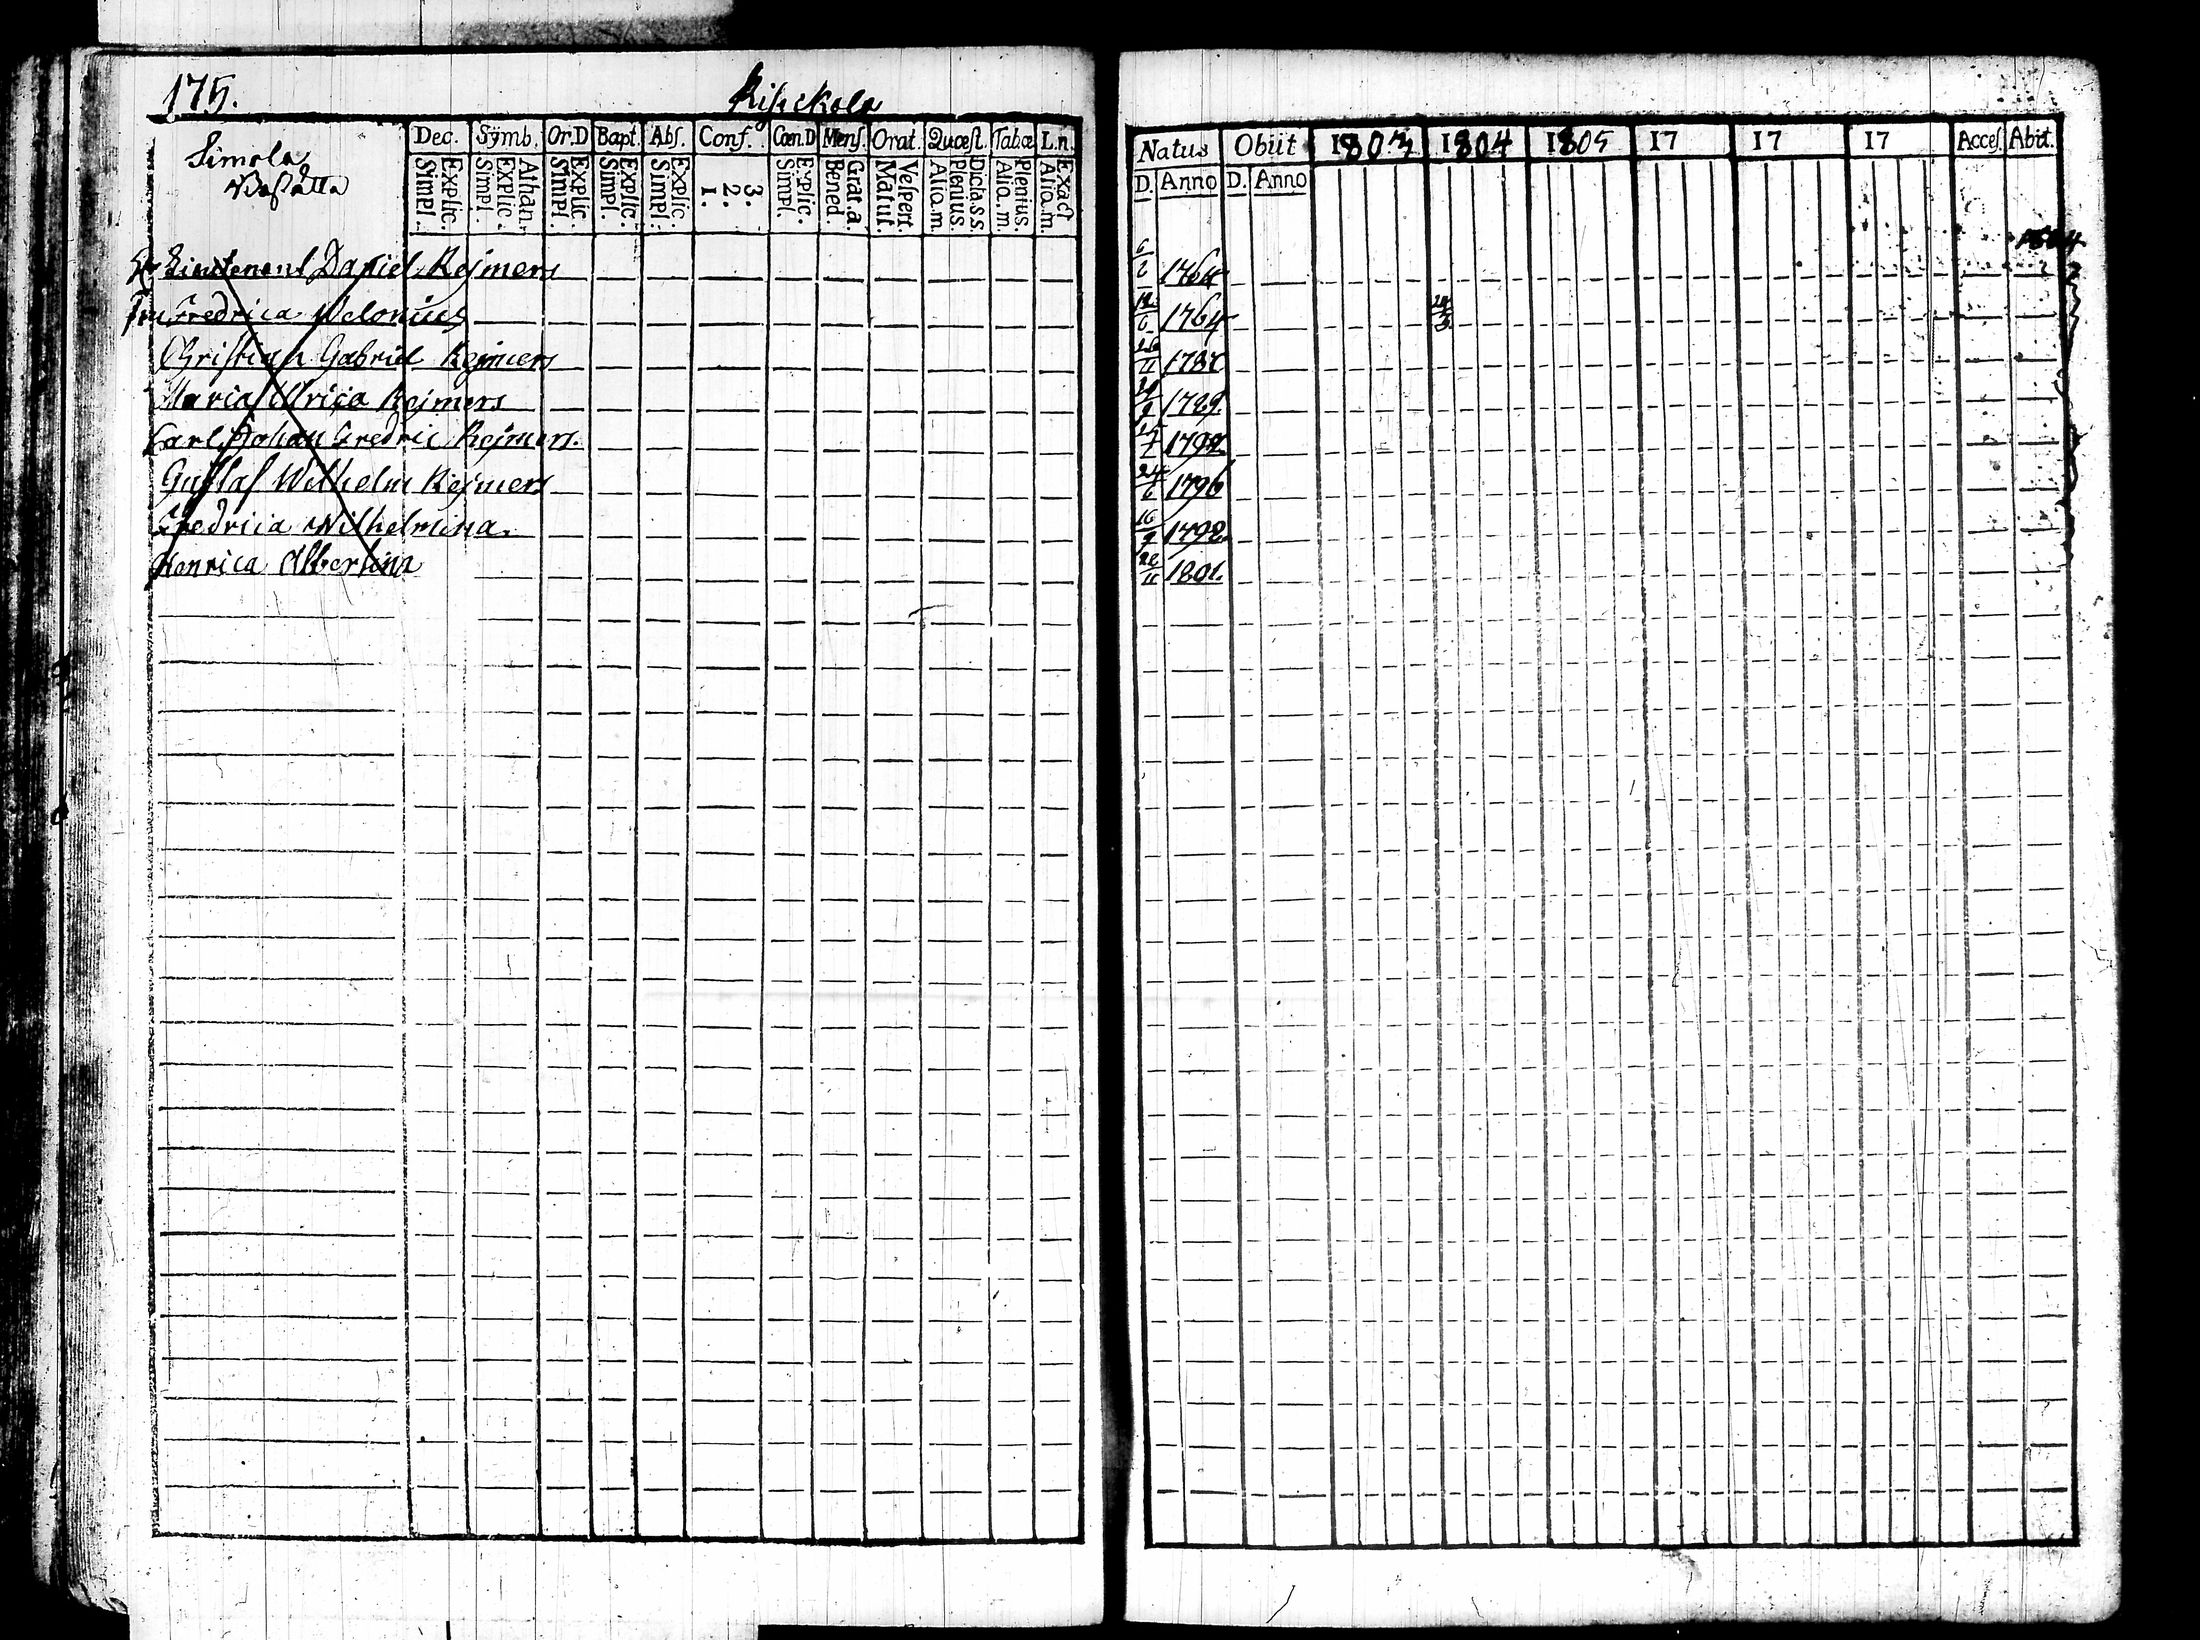 175.
Simola
Boställe
Dec. Symb. Or.D Bapt. Abs. Conf. Cœn.D Mens. Orat. Quæst. Tabœ L.n.
Explic. Simpl. Athan. Explic. Simpl. Explic. Simpl. Explic. Simpl. Explic. Simpl. 3. 2. 1. Explic. Simpl. Grat.a. Bened. Vespert. Matut. Dicta S S. Plenius. Alio.m. Plenius. Alio.m. Exact Alio.m.
Lieutenant Daniel Rejmers
Fru Fredrica Welonius
Christian Gabriel Rejmers
Maria Ulrica Rejmers
Carl Johan Fredric Rejmers.
Gustaf Wilhelm Rejmers
Fredrica Wilhelmina.
Henrica Albertina
Natus Obiit 1803 1804 1805 17 17 17 Acces. Abiit.
D. Anno D. Anno
1804
1764
12/6 1764 24/3
26/11 1787
1789.
1792.
24/6 1796
16/9 1798.
28/11 1801.